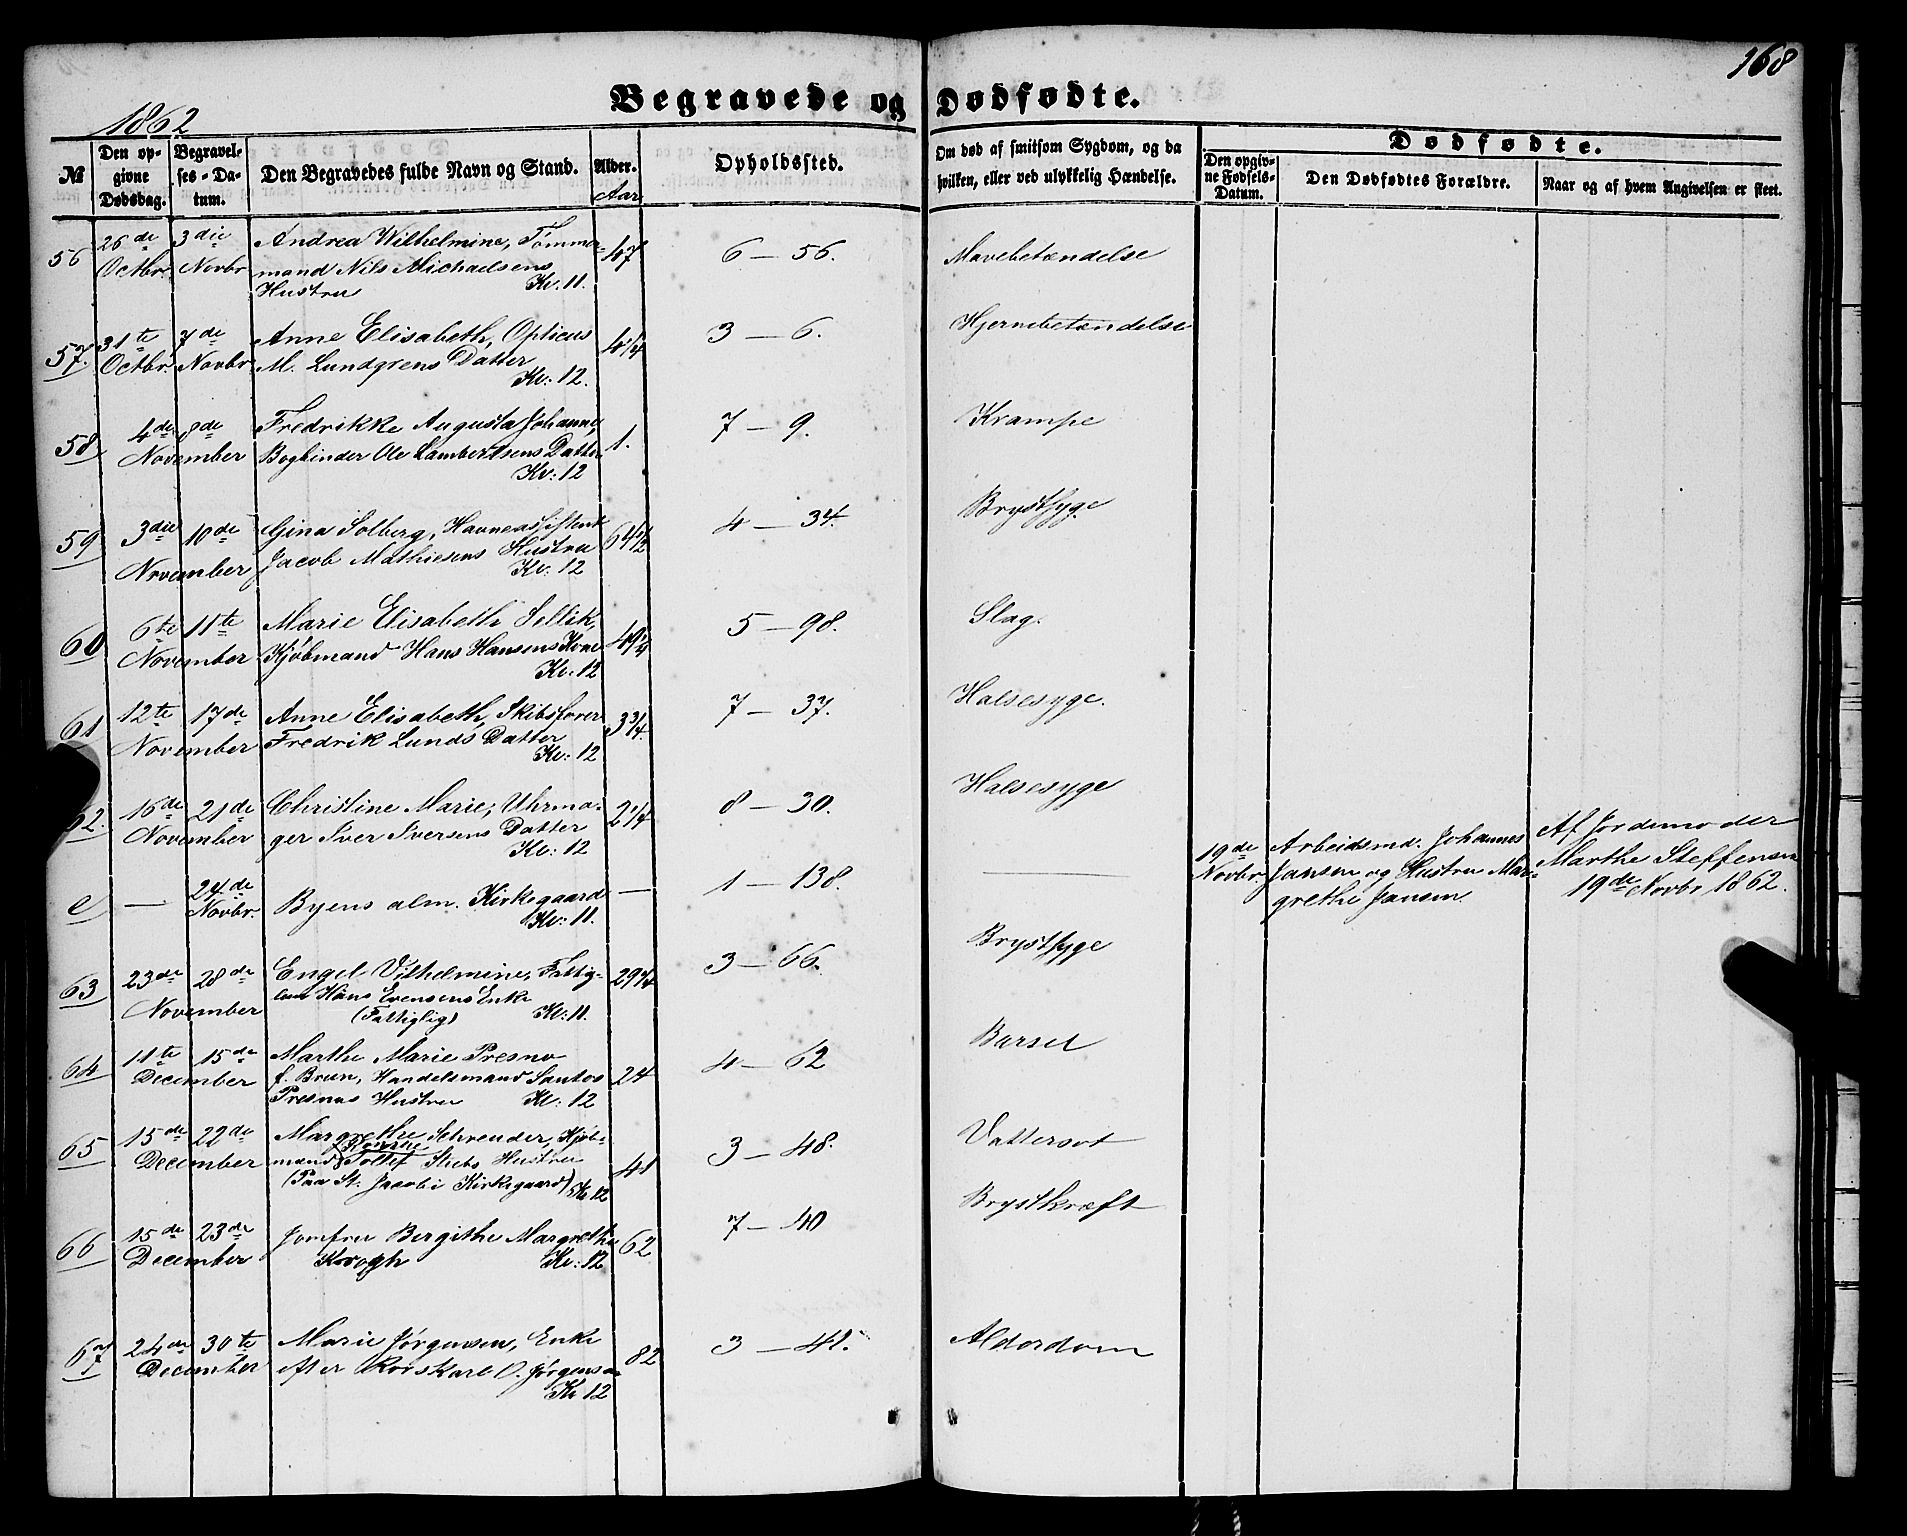 168
Begravede og Dødfødte.
1862
№
Den op-
givne
Dødsdag.
Begravel-
ses-Da-
tum.
Den Begravedes fulde Navn og Stand.
Alder.
Aar
Opholdssted.
Om død af smitsom Sygdom, og da
hvilken, eller ved ulykkelig Hændelse.
Dødfødte.
Den opgiv-
ne Fødsels-
Datum.
Den Dødfødtes Forældre.
Naar og af hvem Angivelsen er skeet.
56 26de Octbr. 3die Novbr Andrea Wilhelmine, Tømmer-
mand Nils Michaelsens
Hustru Kv. 11. 47 6 — 56. Mavebetændelse
57. 31te Octbr. 7de Novbr Anne Elisabeth, Opticus
M. Lundgrens Datter
Kv: 12. 4 1/4 3 — 6. Hjernebetændelse
58 4de 8de November Fredrikke Augusta Johanne,
Bogbinder Ole Lambertsens Datter
Kv: 12 1. 7 — 9. Krampe
59 3die 10de November Gina Solberg, Havneassistent
Jacob Mathiesens Hustru
Kv: 12 64 1/2 4 — 34. Brystsyge
60 6te 11te November Marie Elisabeth Sellik,
Kjøbmand Hans Hansens Kone
Kv: 12 49 1/4 5 — 98. Slag.
61 12te 17de November Anne Elisabeth, Skibsfører
Fredrik Lunds Datter
Kv: 12 3 3/4. 7 — 37. Halsesyge.
62. 16de 21de November Christine Marie, Uhrma-
ger Iver Iversens Datter
Kv: 12 2 1/4 8 — 30. Halsesyge
e — 24de Novbr. Byens alm. Kirkegaard
Kv: 11. — 1 — 138. —
19de Novbr. Arbeidsmd. Johannes
Jansen og Hustru Mar-
grethe Jansen
Af Jordemoder
Marthe Steffensen
19de Novbr 1862.
63 23de 28de November Engel Vilhelmine, Fattig-
lem Hans Evensens Enke
(Fattiglig) Kv: 11. 29 3/4 3 — 66. Brystsyge
64 11te 15de December Marthe Marie Presno
f. Bruun, Handelsmand Santos
Presnos Hustru Kv: 12 24 4 — 62 Barsel
65 15de 22de December Margrethe Schrøuder, Kjøb-
mand Tollef Stubs Hustru
(Paa St: Jacobi Kirkegaard) Kv 12 41 3 — 48. Vattersot
66 15de 23de December Jomfru Bergithe Margrethe
Krogh Kv: 12 62 7 — 40 Brystkræft
67 24de 30te December Marie Jørgensen, Enke
efter Rorskarl O. Jørgensen
Kv 12 82 3 — 41. Alderdom